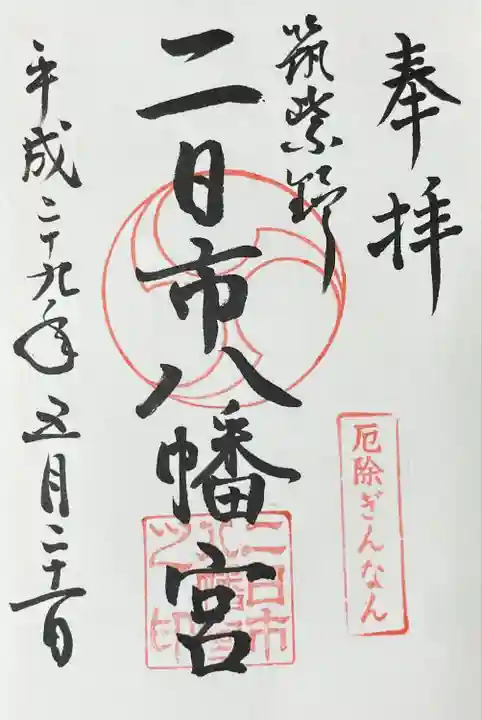 奉拝
筑紫野
二日市八幡宮
平成二十九年五月二十一日
厄除ぎんなん
二日市
八幡宮
之印